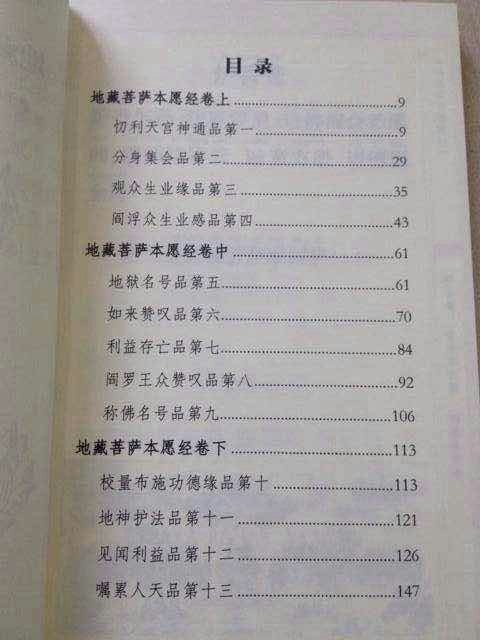 目录
地藏菩萨本愿经卷上........................9
忉利天宫神通品第一........................9
分身集会品第二........................29
观众生业缘品第三........................35
阎浮众生业感品第四........................43
地藏菩萨本愿经卷中........................61
地狱名号品第五........................61
如来赞叹品第六........................70
利益存亡品第七........................84
阎罗王众赞叹品第八........................92
称佛名号品第九........................106
地藏菩萨本愿经卷下........................113
校量布施功德缘品第十........................113
地神护法品第十一........................121
见闻利益品第十二........................126
嘱累人天品第十三........................147